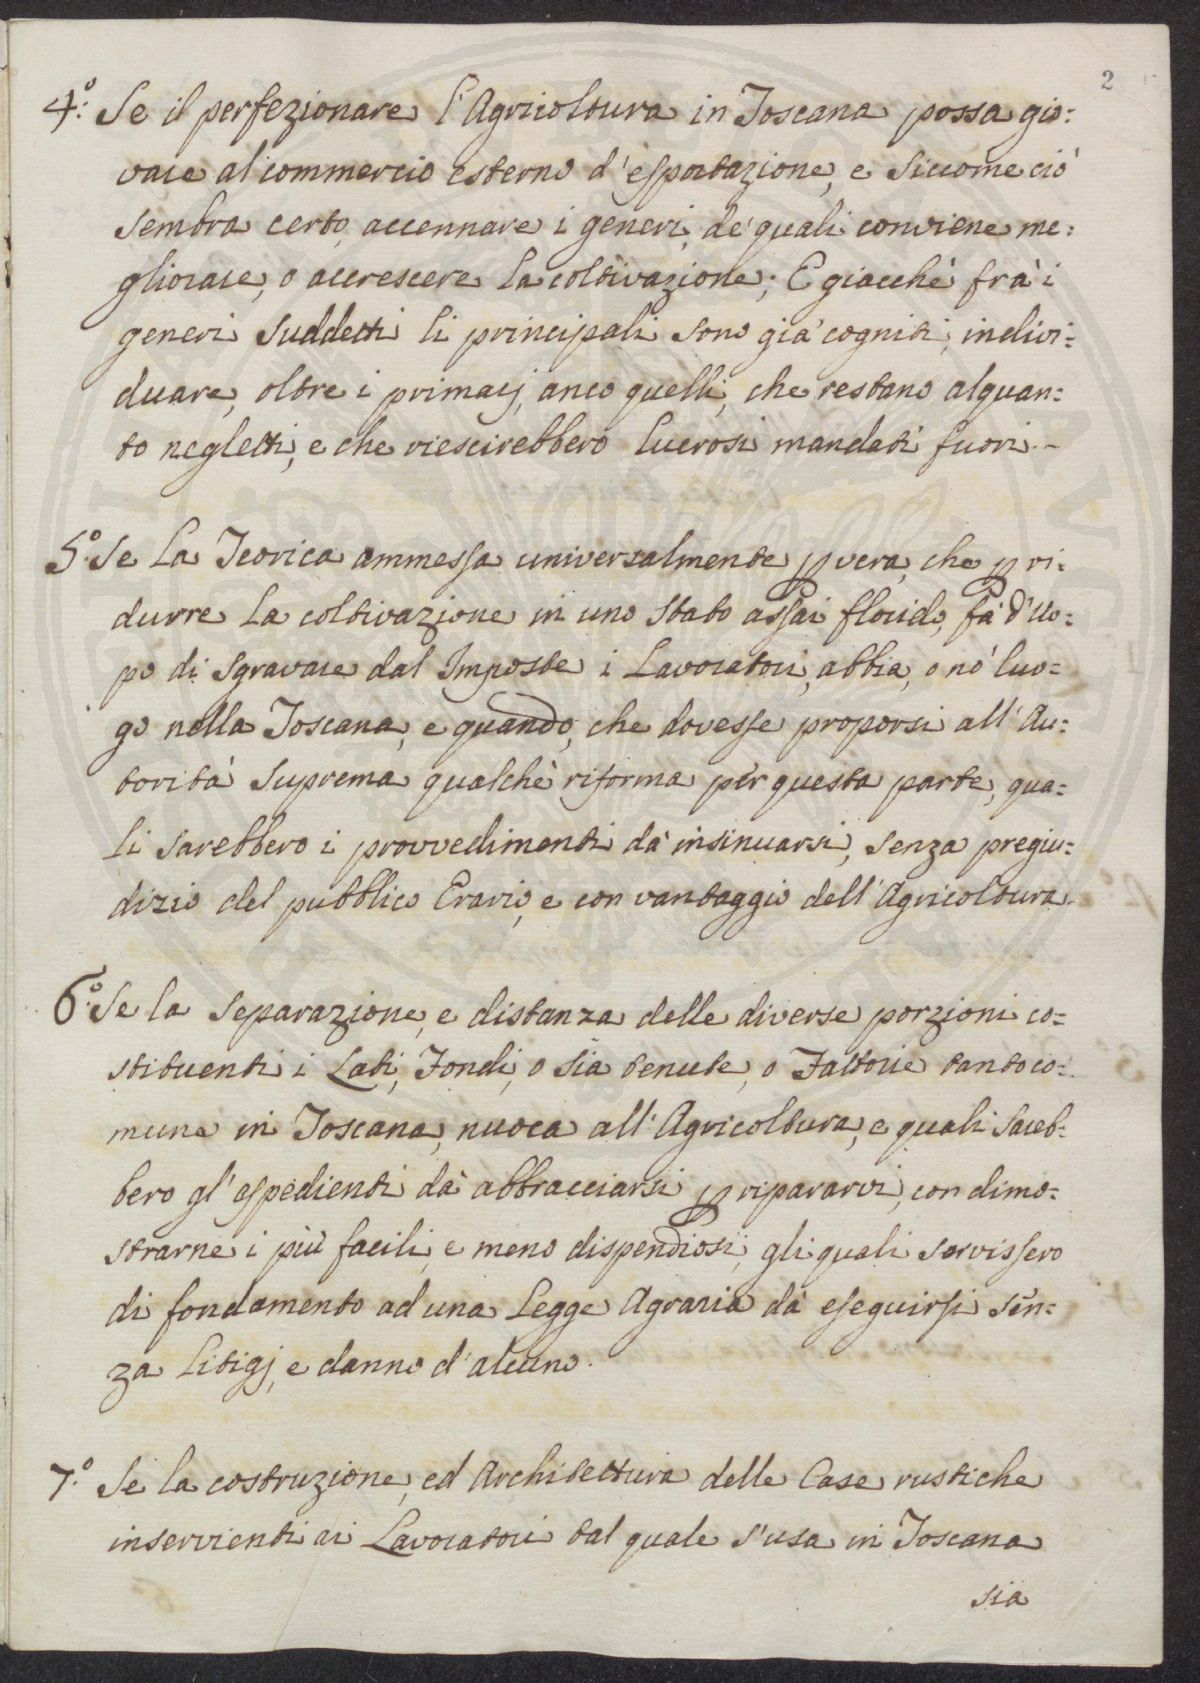 2
4.º Se il perfezionare l'Agricoltura in Toscana possa gio=
vare al commercio esterno d'esportazione, e siccome ciò
sembra certo, accennare i generi, de' quali conviene me=
gliorare, o accrescere la coltivazione; E giacchè frà i
generi suddetti li principali sono già cogniti, indivi=
duare, oltre i primarj, anco quelli, che restano alquan=
to negletti, e che riescirebbero lucrosi mandati fuori.-
5.º Se la Teorica ammessa universalmente p vera, che p ri=
durre la coltivazione in uno stato assai florido, fà d'uo=
po di sgravare dal Imposte i Lavoratori, abbia, o nò luo=
go nella Toscana, e quando, che dovesse proporsi all'Au=
torità Suprema qualchè riforma per questa parte, qua=
li sarebbero i provvedimenti dà insinuarsi, senza pregiu=
dizio del pubblico Erario, e con vantaggio dell'Agricoltura.
6.º Se la separazione, e distanza delle diverse porzioni co=
stituenti i Lati, Fondi, o sia tenute, o Fattorie tanto co=
mune in Toscana, nuoca all'Agricoltura, e quali sareb=
bero gl'espedienti dà abbracciarsi p ripararvi, con dimo=
strarne i più facili, e meno dispendiosi, gli quali servissero
di fondamento ad una Legge Agraria dà eseguirsi sen=
za Litigj, e danno d'alcuno.
7.º Se la costruzione, ed Architettura delle Case rustiche
inservienti ai Lavoratori tal quale s'usa in Toscana
sia